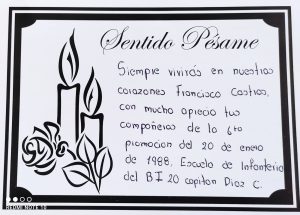 Sentido Pésame
Siempre vivirás en nuestros
corazones Francisco Castros,
con mucho aprecio tus
compañeros de la 6to
promocion del 20 de enero
de 1988, Escuela de Infanteria
del BI 20 capitan Díaz C.
REDMI NOTE 10